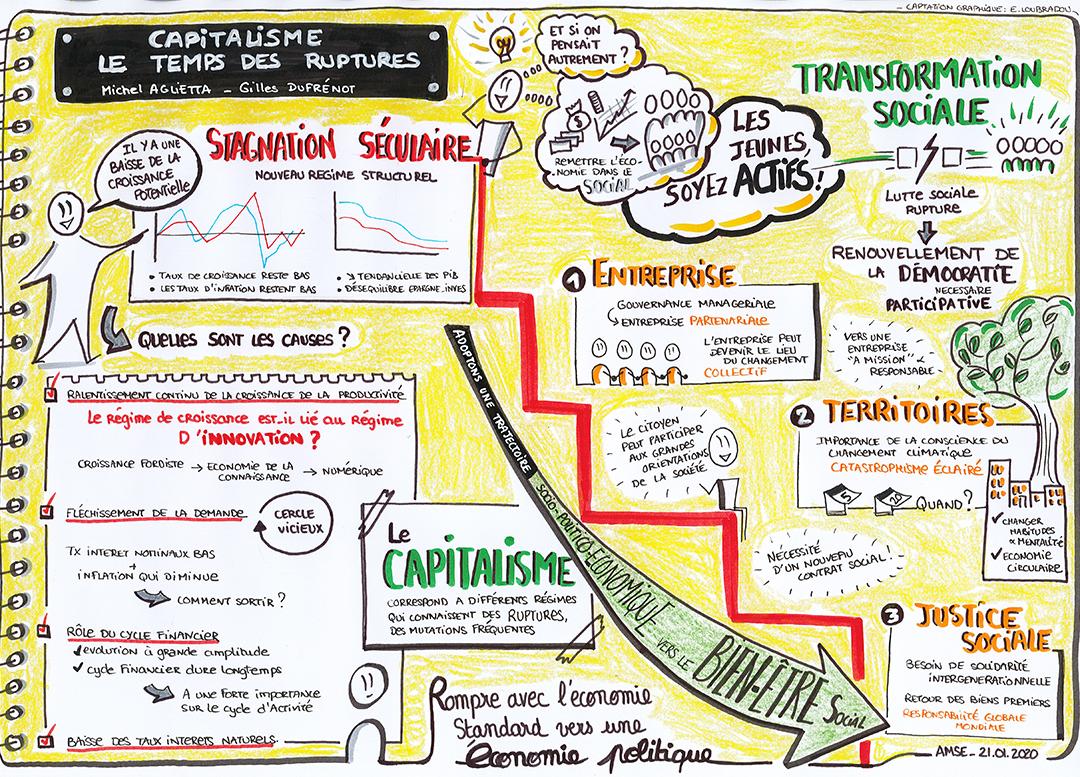 - CAPTATION GRAPHIQUE: E. LOUBRADOU -
CAPITALISME
LE TEMPS DES RUPTURES
Michel AGLIETTA - Gilles DUFRÉNOT
ET SI ON
PENSAIT
AUTREMENT ?
REMETTRE L'ÉCO-
NOMIE DANS LE
SOCIAL
LES
JEUNES,
SOYEZ ACTIFS !
TRANSFORMATION
SOCIALE
LUTTE SOCIALE
RUPTURE
RENOUVELLEMENT DE
LA DÉMOCRATIE
NECESSAIRE
PARTICIPATIVE
IL Y A UNE
BAISSE DE LA
CROISSANCE
POTENTIELLE
STAGNATION SÉCULAIRE
NOUVEAU REGIME STRUCTUREL
• TAUX DE CROISSANCE RESTE BAS
• LES TAUX D'INFLATION RESTENT BAS
• ↘ TENDANCIELLE DES PIB
• DÉSEQUILIBRE EPARGNE-INVES
QUELLES SONT LES CAUSES ?
RALENTISSEMENT CONTINU DE LA CROISSANCE DE LA PRODUCTIVITÉ
Le Régime de croissance est-il lié au Régime
D'INNOVATION ?
CROISSANCE FORDISTE → ECONOMIE DE LA → NUMÉRIQUE
CONNAISSANCE
FLÉCHISSEMENT DE LA DEMANDE
CERCLE
VICIEUX
TX INTERET NOMINAUX BAS
+
INFLATION QUI DIMINUE
COMMENT SORTIR ?
RÔLE DU CYCLE FINANCIER
✓ évolution à grande amplitude
✓ cycle Financier dure longtemps
A UNE FORTE IMPORTANCE
SUR LE CYCLE D'Activité
BAISSE DES TAUX INTERETS NATURELS
Le
CAPITALISME
CORRESPOND A DIFFÉRENTS RÉGIMES
QUI CONNAISSENT DES RUPTURES,
DES MUTATIONS FRÉQUENTES
ADOPTONS UNE TRAJECTOIRE SOCIO-POLITICO-ECONOMIQUE VERS LE BIEN-ÊTRE SOCIAL
Rompre avec l'économie
Standard vers une
économie politique
1 ENTREPRISE
GOUVERNANCE MANAGERIALE
ENTREPRISE PARTENARIALE
L'ENTREPRISE PEUT
DEVENIR LE LIEU
DU CHANGEMENT
COLLECTIF
VERS UNE
ENTREPRISE
"A MISSION"
RESPONSABLE
LE CITOYEN
PEUT PARTICIPER
AUX GRANDES
ORIENTATIONS
DE LA SOCIÉTÉ
2 TERRITOIRES
IMPORTANCE DE LA CONSCIENCE DU
CHANGEMENT CLIMATIQUE
CATASTROPHISME ÉCLAIRÉ
QUAND ?
✓ CHANGER
HABITUDES
& MENTALITÉ
✓ ECONOMIE
CIRCULAIRE
NÉCESSITÉ
D'UN NOUVEAU
CONTRAT SOCIAL !
3 JUSTICE
SOCIALE
BESOIN DE SOLIDARITÉ
INTERGENERATIONNELLE
RETOUR DES BIENS PREMIERS
RESPONSABILITÉ GLOBALE
MONDIALE
- AMSE - 21.01.2020